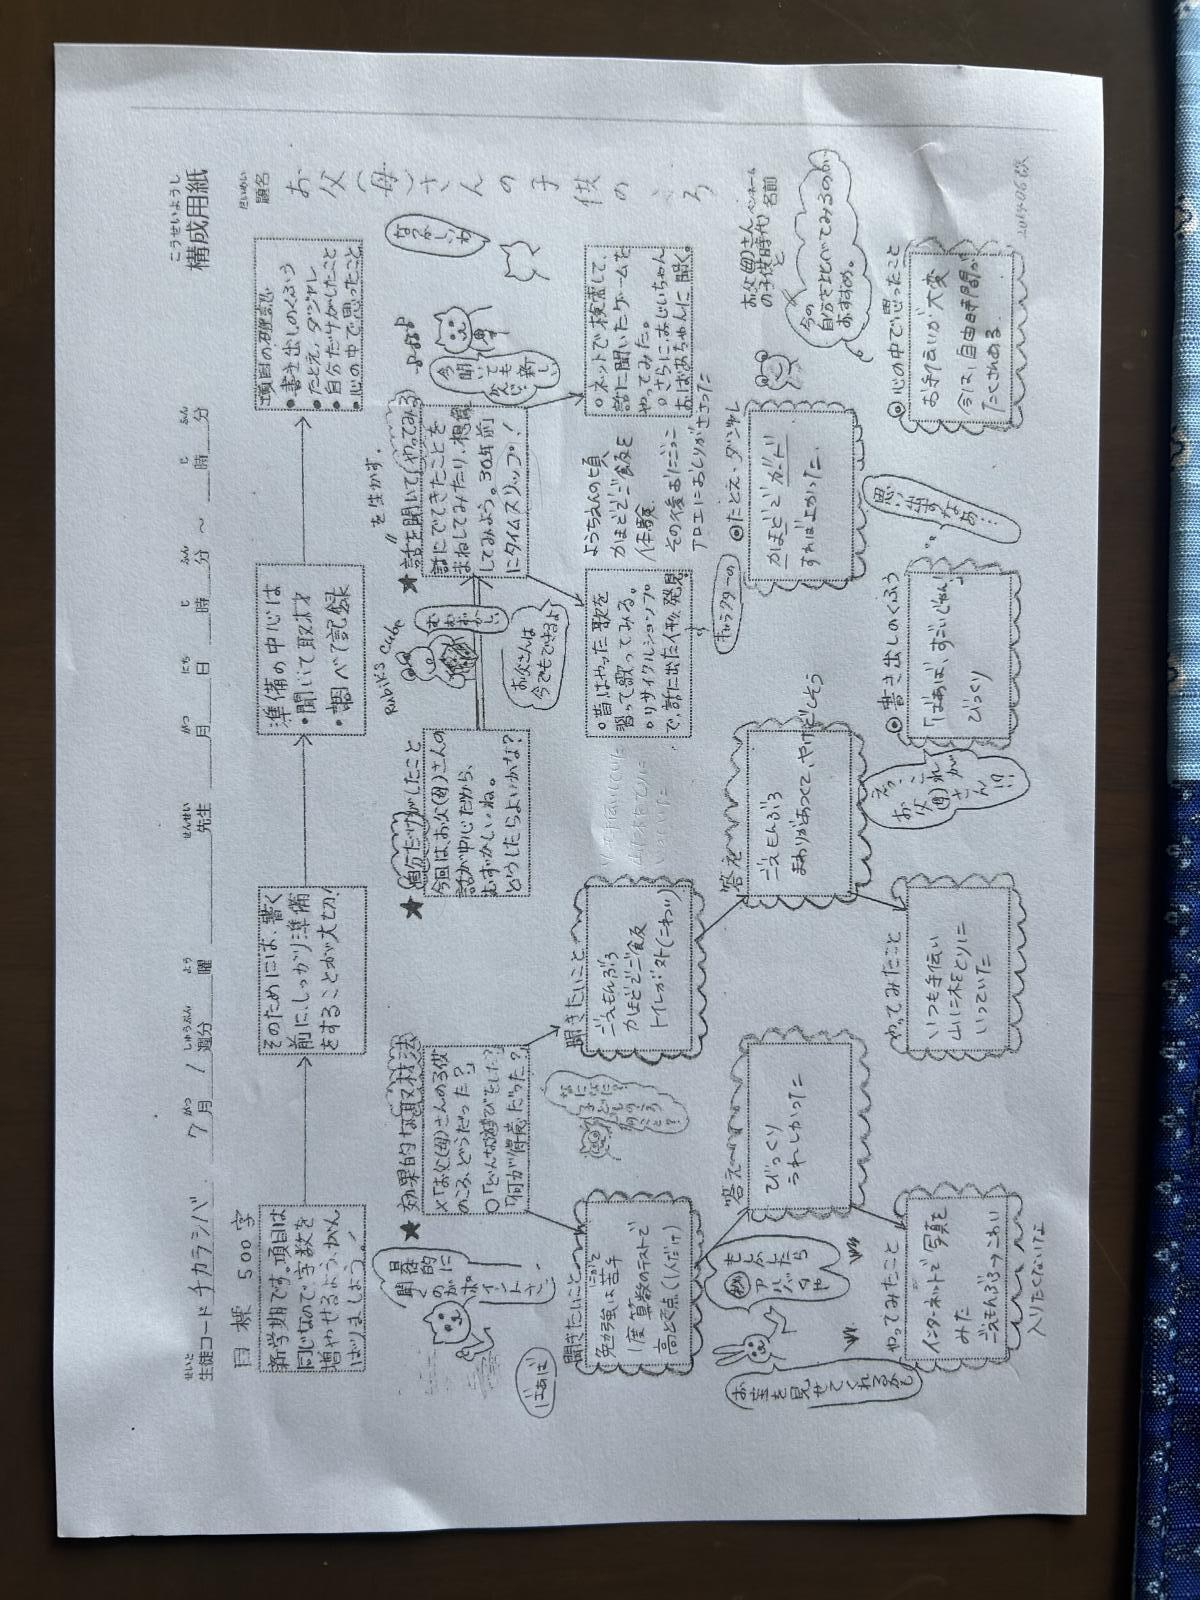 こうせいようし
構成用紙
せいと
生徒コード チカラシバ 7月 / 週分 曜 先生 月 日 時 分 ～ 時 分
がつ しゅうぶん よう せんせい がつ にち じ ふん じ ふん
だいめい
題名
お父(母)さんの子供のころ
目標 500字
新学期です。項目は
同じなので字数を
増やせるよう、がん
ばりましょう！
そのためには、書く
前に、しっかり準備
をすることが大切！
準備の中心は
・聞いて取材
・調べて記録
項目の確認
●書き出しのくふう
●たとえ、ダジャレ
●自分だけがしたこと
●心の中で思ったこと
★効果的な取材法
×「お父(母)さんの子供
のころ、どうだった？」
○「どんな遊びをした？」
「何が得意だった？」
★自分だけがしたこと
今回は、お父(母)さんの
話が中心だから、
むずかしいね。
どうしたらよいかな？
Rubik's Cube
お父さんは
今でもできるよ
を生かす。
★話を聞いて(やってみる)
話にでてきたことを
まねしてみたり、想像
してみよう。30年前
にタイムスリップ！
なつかしいわ
ばあば
聞きたいこと
勉強は苦手
にがて
1度算数のテストで
高と点(1人だけ)
聞きたいこと
ごえもんぶろ
かまどでご飯
トイレが外(こわい)
○昔はやった歌を
習って歌ってみる。
○リサイクルショップ
で、話に出た人形発見
キャラクターの
ようちえんの頃
かまどでご飯を
体験
その後おにごっこ
アロエにおしりがささった
○ネットで検索して、
話に聞いたゲームを
やってみた。
○さらに、おじいちゃん
おばあちゃんに聞く。
お宝を見せてくれるかも
もしかしたら
アルバムや
答え
びっくり
うれしかった
答え
ごえもんぶろ
まわりがあつくて、やけどしそう
◎たとえ・ダジャレ
かまどでガード
すれば上がいった
お父(母)さん
の子供時代と
ペンネーム
名前
今の
自分を比べてみるのが
おすすめ。
やってみたこと
インターネットで写真を
みた
ごえもんぶろ→こわい
入りたくないな
やってみたこと
いつも手伝い
山に木をとりに
いっていた
え、これ
お父(母)さんが
!?
◎書き出しのくふう
「ばあば、すごいじゃん」
びっくり
思い出すなあ…
◎心の中で思ったこと
お手伝いが大変
今は、自由時間が
たくさんある